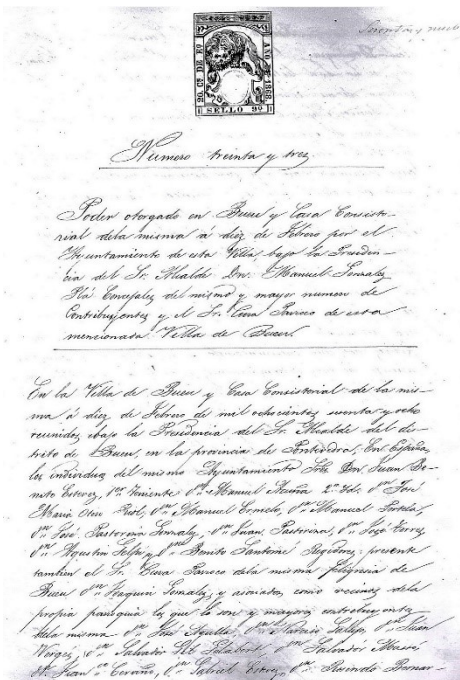 Sesenta y nueve
20. Cs. DE Eº
AÑO DE 1868.
SELLO 9º
Numero treinta y tres
Poder otorgado en Bueu y Casa Consisto-
rial dela misma á diez de Febrero por el
Ayuntamiento de esta Villa, bajo la Presiden-
cia del Sr. Alcalde Dn. Manuel Gonzalez
Plá Concejales del mismo y mayor numero de
Contribuyentes y el Sr. Cura Parroco de esta
mencionada Villa de Bueu.
En la Villa de Bueu y Casa Consistorial de la mis-
ma á diez de Febrero de mil ochocientos sesenta y ocho
reunidos bajo la Presidencia del Sr. Alcalde del dis-
trito de Bueu, en la provincia de Pontevedra, En España,
los individuos del mismo Ayuntamiento Dn Juan Be-
nito Estevez, 1er. Teniente Dn. Manuel Acuña 2º Id. Dn José
Maria Otero Dn. Manuel Dn. Manuel Portela,
Dn. José Pastoriza Gonzalez, Dn. Juan Pastoriza, Dn. José Torres,
Dn. Agustin y Dn. Benito Santomé Regidores; presente
tambien el Sr. Cura Parroco dela misma feligresia de
Bueu Dn Joaquin Gonzalez, y asociados como vecinos dela
propia parroquia los que lo son y mayores contribuyentes
dela misma Dn. José Agulla, Dn. Narciso Gallego, Dn. Juan
Verges, Dn. Salvador Dn. Salvador Massó
Dn. Juan Cerviño, Dn. Gabriel Estevez, Dn. Rosendo Bernar-